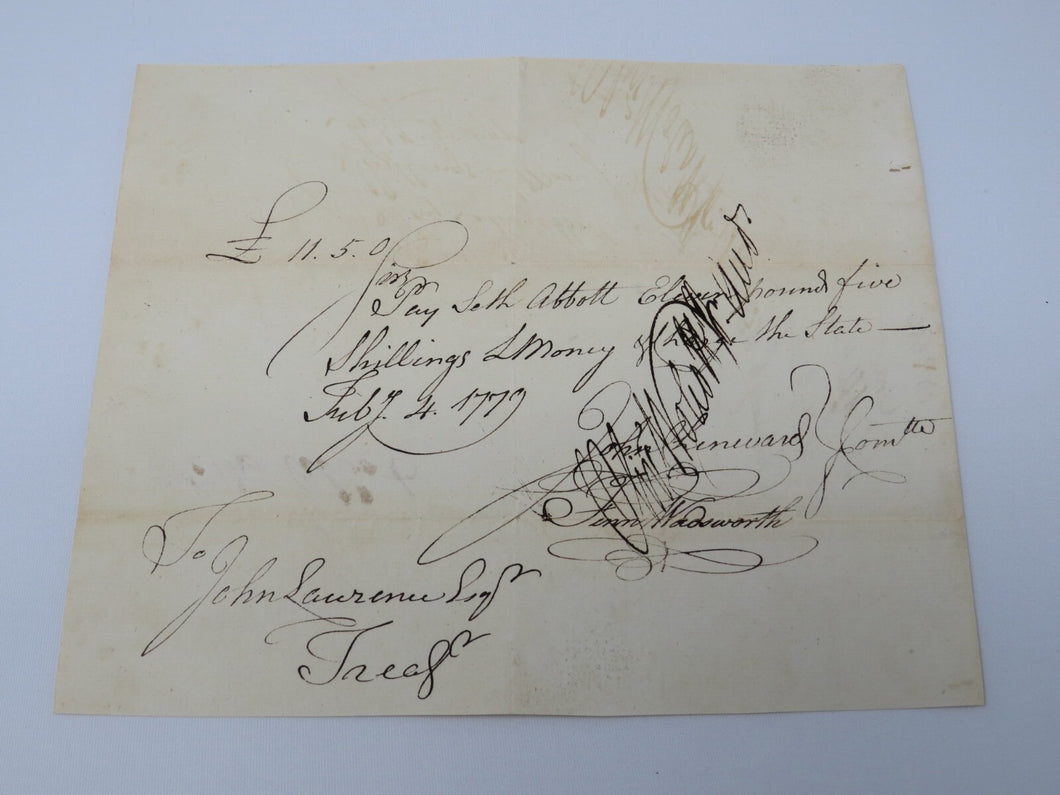 £ 11. 5. 0
Sir
Pay Seth Abbott Eleven pounds five
Shillings L Money & Charge the State —
Feby. 4. 1779
John Chenward Comtte
Fenn Wadsworth
To
John Lawrence Esqr
Treasr